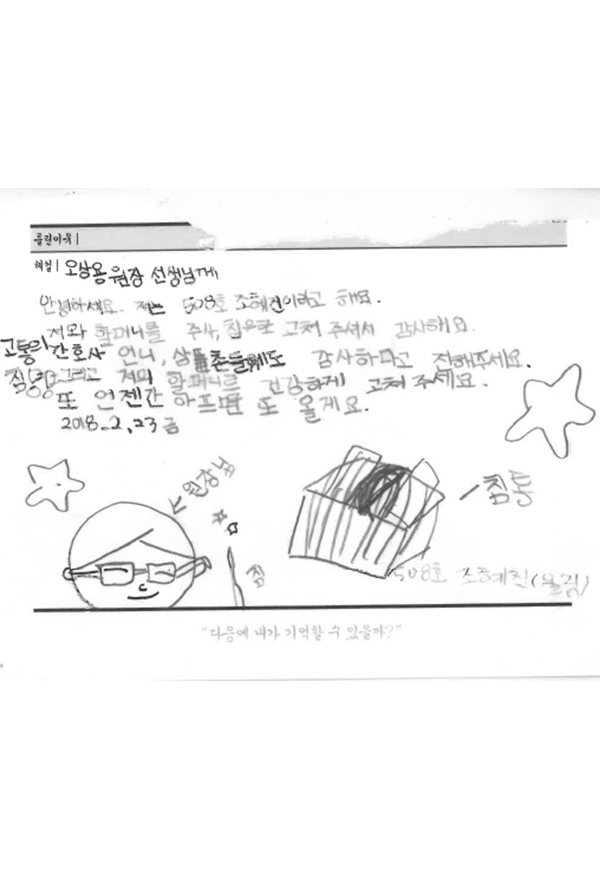 틀린이유 |
해설 | 오상용 원장 선생님께
안녕하세요. 저는 508호 조혜진이라고 해요.
저와 할머니를 주사, 침으로 고쳐 주셔서 감사해요.
간호사 언니, 삼촌들에도 감사하다고 전해주세요.
그리고 저의 할머니를 건강하게 고쳐 주세요.
또 언젠간 아프면 또 올게요.
2018.2.23 금
원장님
침
침통
508호 조혜진(올림)
"다음에 내가 기억할 수 있을까?"